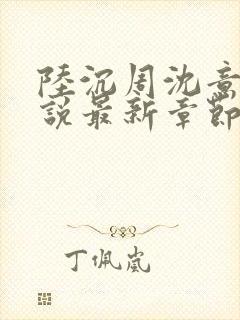 陸沉周沈意
說最新章節
丁佩嵐